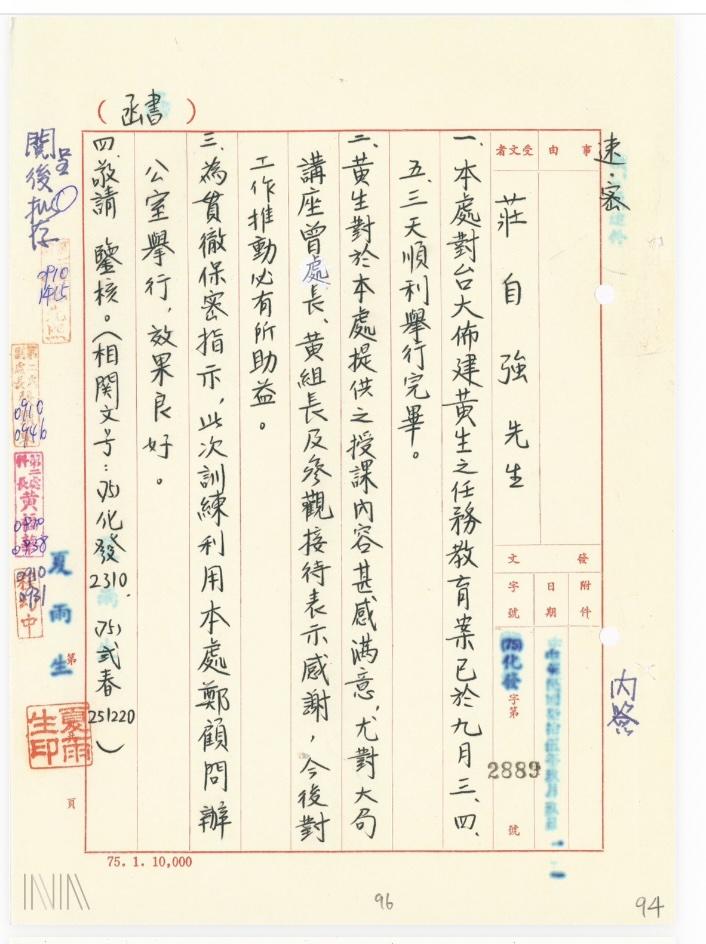 速·密
事由
受文者
莊自強先生
發文
附件
日期
字號
(75)化發
字第
2889
號
內簽
(書函)
一、本處對台大佈建黃生之任務教育案已於九月三、四、
五、三天順利舉行完畢。
二、黃生對於本處提供之授課內容甚感滿意,尤對大局
講座曾處長、黃組長及參觀接待表示感謝,今後對
工作推動必有所助益。
三、為貫徹保密指示,此次訓練利用本處鄭顧問辦
公室舉行,效果良好。
四、敬請 鑒核。(相關文号:(75)化發2310.(75)弍春251220)
夏雨生
夏雨生印
第
頁
呈
閱後擬存
0910
1415
0910
0946
0910
0931
75. 1. 10,000
96
94